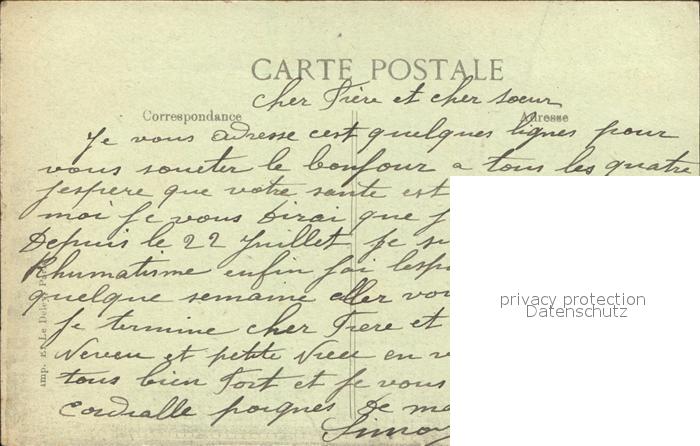 CARTE POSTALE
cher Frère et cher soeur
Correspondance
Adresse
Je vous adresse cest quelques lignes pour
vous soueter le bonjour a tous les quatre
jespere que votre sante est
moi je vous dirai que j
Depuis le 22 Juillet je s
Rhumatisme enfin jai lesp
quelque semaine aller vo
Je termine cher Frere et
Neveu et petite Niece en
tous bien Fort et je vous
Cordialle poignes De m
Simo
imp. E. Le Deley, Paris
privacy protection
Datenschutz